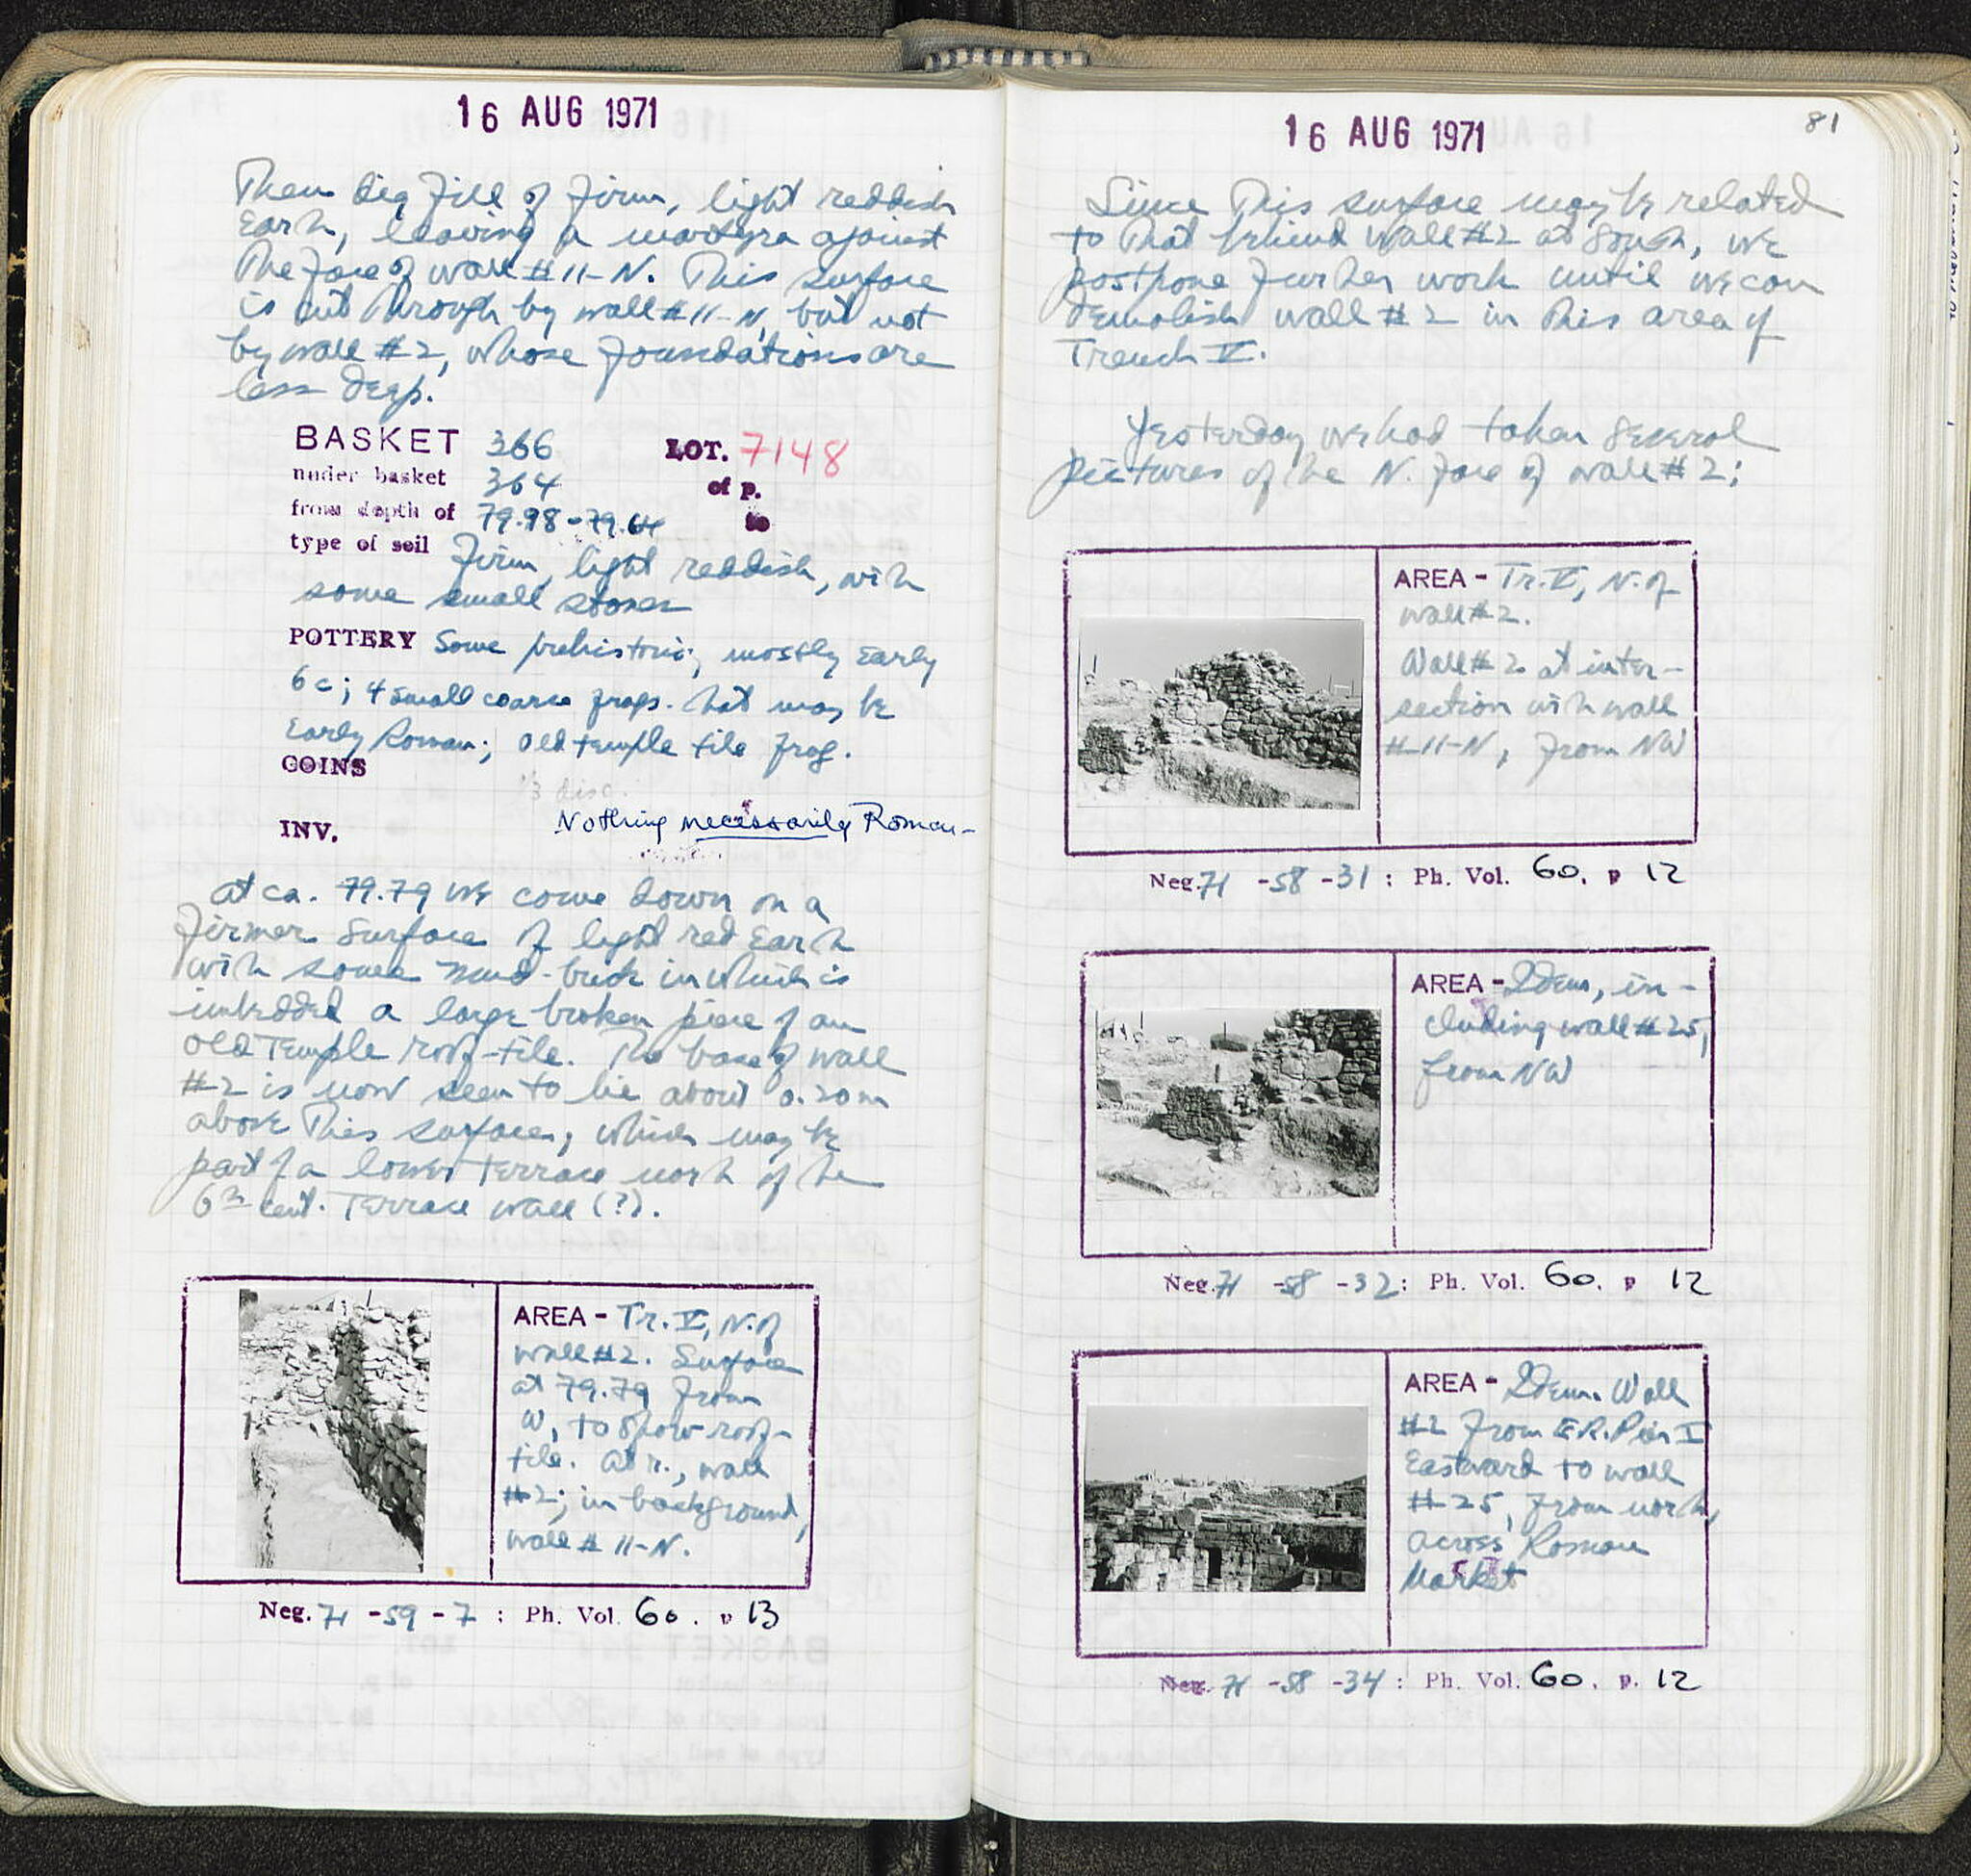 16 AUG 1971
Then dig fill of firm, light reddish
Earth, leaving a martyra against
The face of wall #11-N. This surface
is cut through by wall #11-N, but not
by wall #2, whose foundations are
less deep.
BASKET 366 LOT. 7148
under basket 364 of p.
from depth of 79.98-79.64 to
type of soil Firm, light reddish, with
some small stones
POTTERY Some prehistoric, mostly Early
6 c; 4 small coarse frags. that may be
Early Roman; old temple tile frag.
COINS
1/3 disc.
INV. Nothing necessarily Roman-
At ca. 79.79 we come down on a
firmer surface of light red Earth
with some mud-brick in which is
imbedded a large broken piece of an
old Temple roof-tile. The base of wall
#2 is now seen to lie about 0.20m
above this surface, which may be
part of a lower terrace north of the
6th cent. Terrace wall (?).
AREA - Tr. V, N. of
wall #2. Surface
at 79.79 from
W, to show roof-
tile. At r., wall
#2; in background,
wall # 11-N.
Neg. 71 -59 - 7 : Ph. Vol. 60. p 13
81
16 AUG 1971
Since This surface may be related
to that behind wall #2 at South, we
postpone further work until we can
demolish wall #2 in this area of
Trench V.
Yesterday we had taken several
pictures of the N. face of wall #2:
AREA - Tr. V, N. of
wall #2.
Wall #2 at inter-
section with wall
#11-N, from NW
Neg. 71 -58 -31 : Ph. Vol. 60. p 12
AREA - Idem, in-
cluding wall #25,
from NW
Neg. 71 -58 -32 : Ph. Vol. 60. p 12
AREA - Idem. Wall
#2 from E.R. Pier I
Eastward to wall
#25, from north,
across Roman
Market
Neg. 71 -58 -34 : Ph. Vol. 60. p. 12